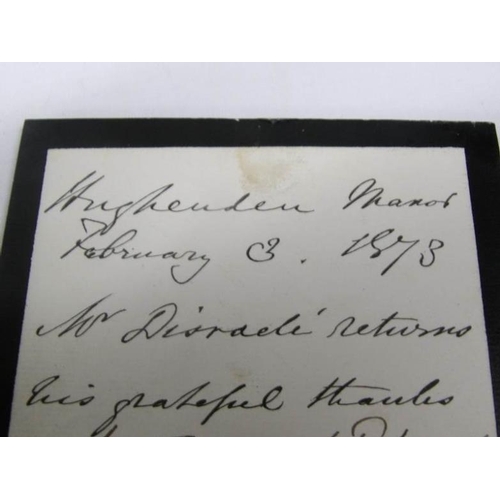 Hughenden Manor
February 3. 1873
Mr Disraeli returns
his grateful thanks